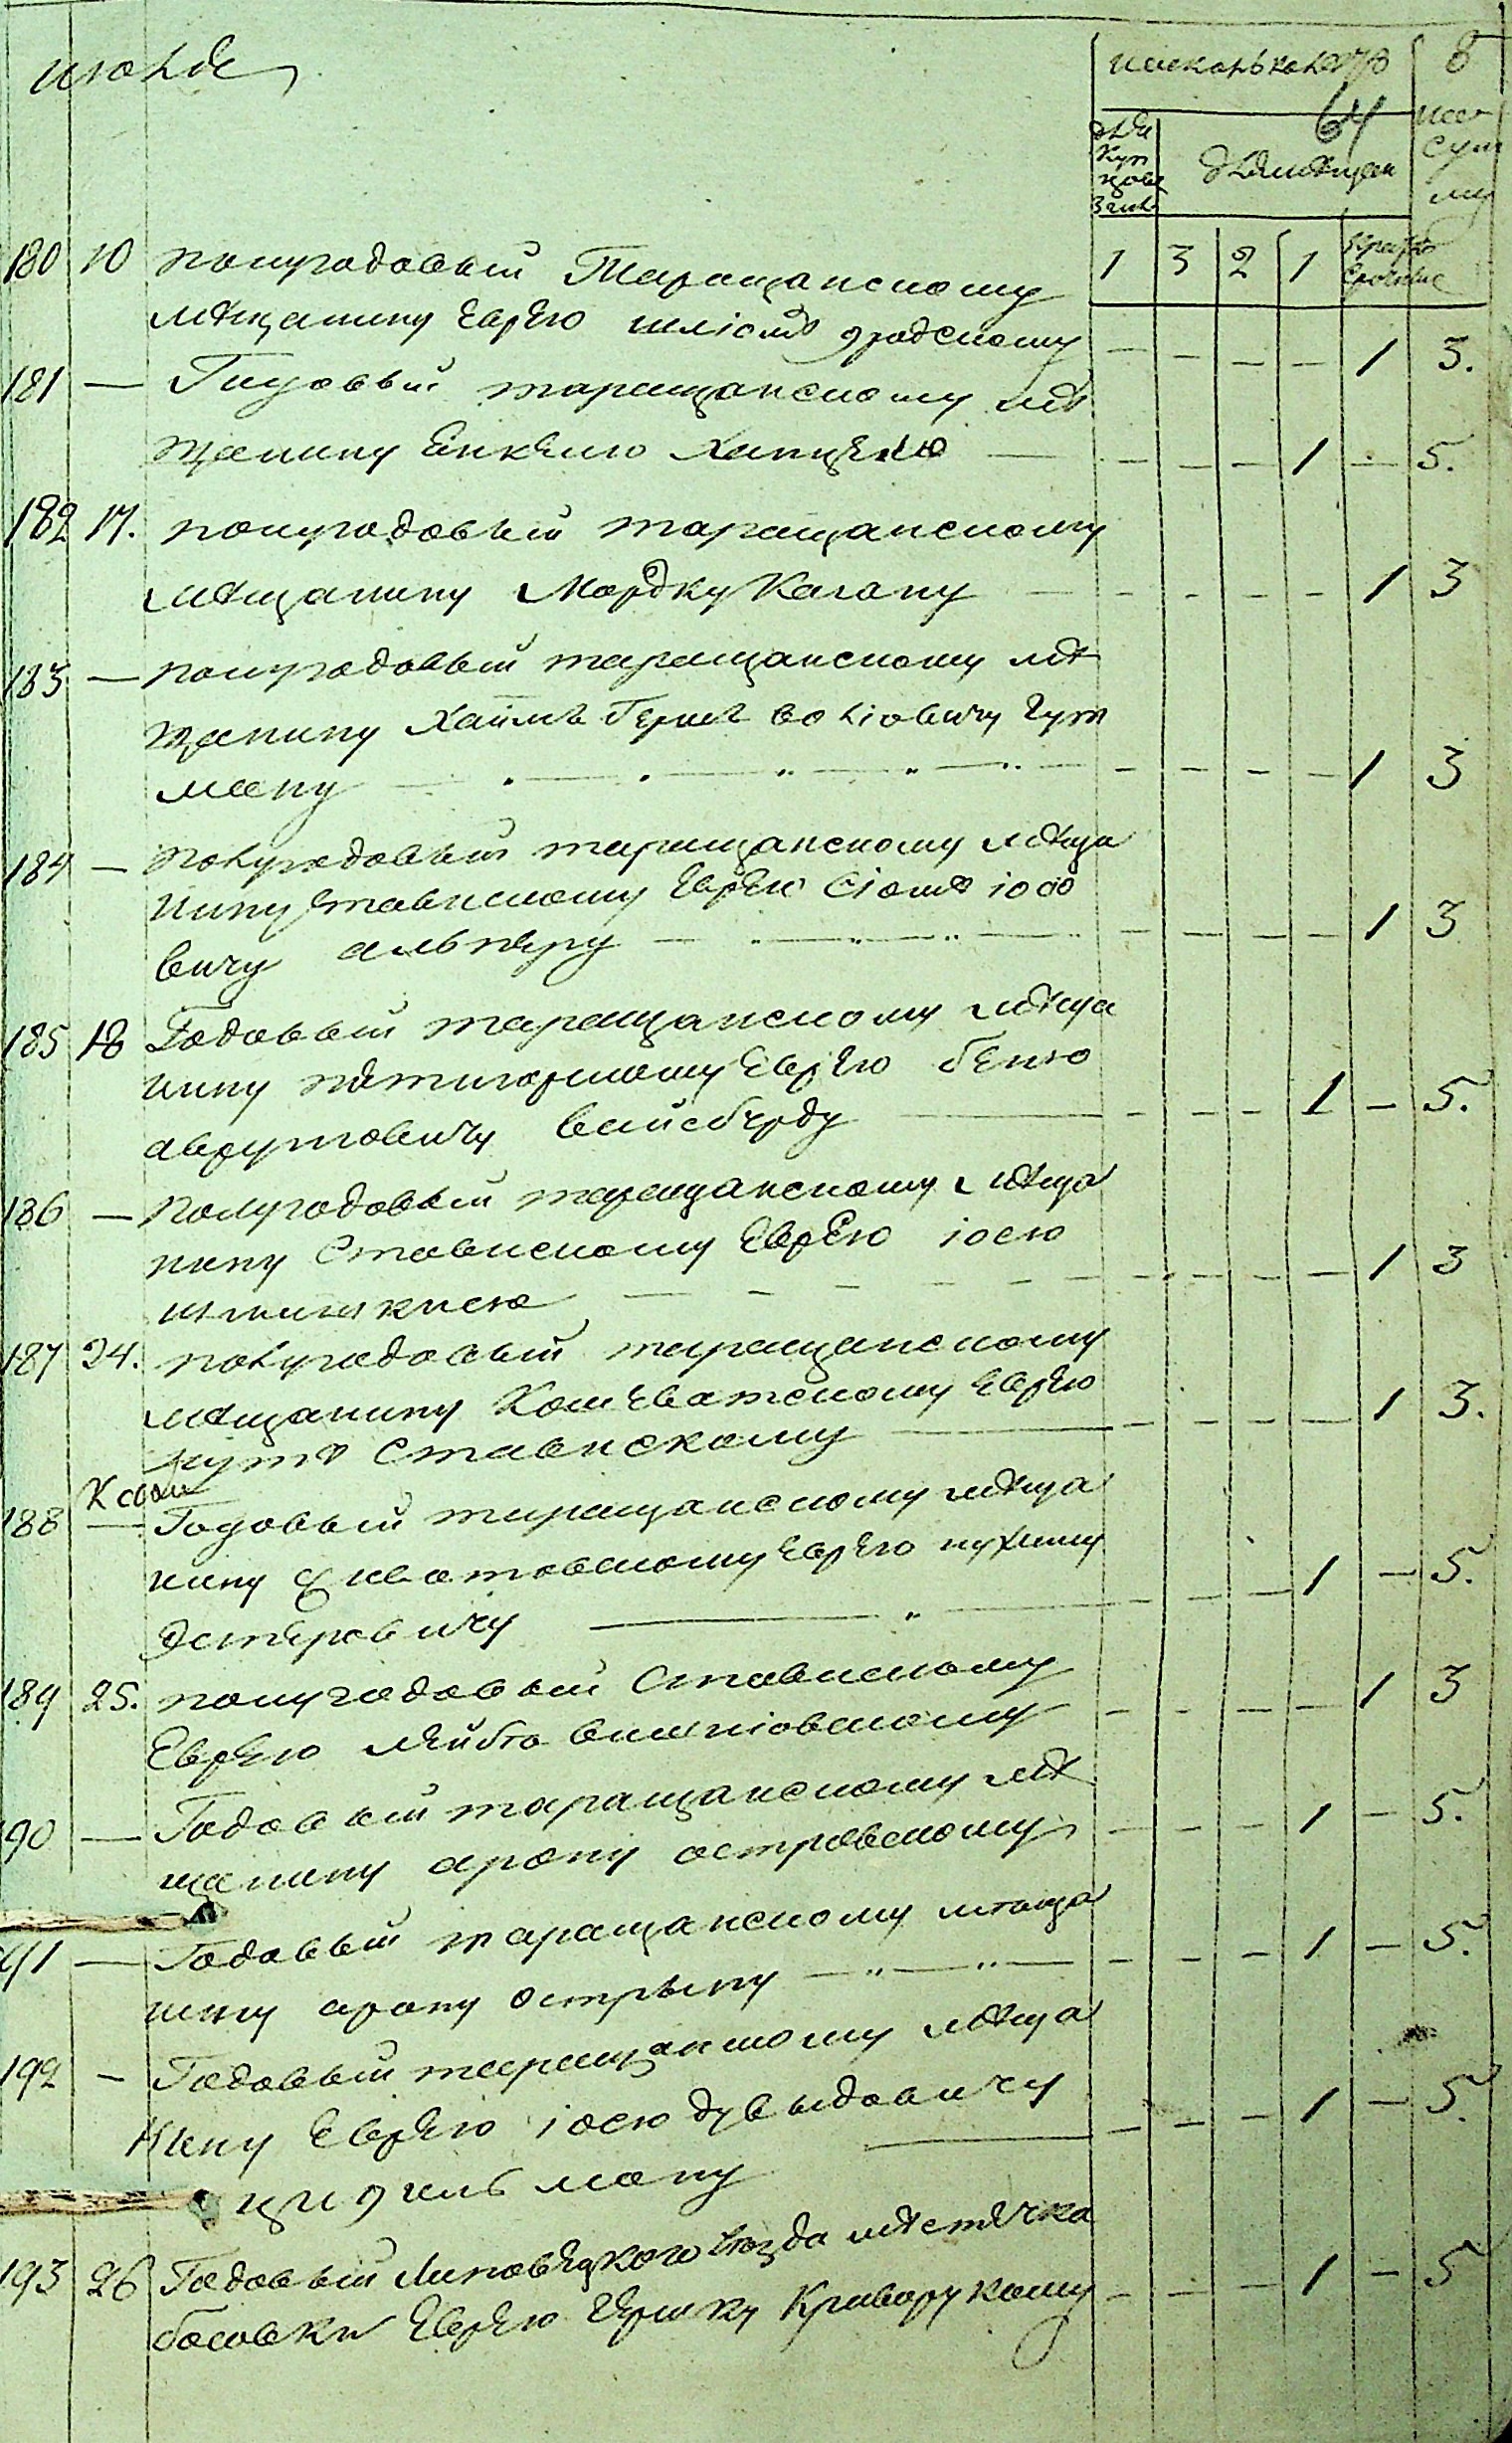 июнь
64
для
Куп
цовъ
3 гил.
для мѣщан
на
сум
му
1 3 2 1 Крат
срочные
180 10 полугодовый Таращанскому
мѣщанину Еврею Шліомѣ Градскому — — — — 1 3.
181 — Годовый таращанскому мѣ
щанину Енкелю — — — 1 — 5.
182 17. полугодовый таращанскому
мѣщанину Мордку Кагану — — — — 1 3
183 — полугодовый таращанскому мѣ
щанину Хаимѣ Герш Гут
ману — — — — 1 3
184 — полугодовый таращанскому мѣща
нину Ставискому Еврею Сіомѣ
вичу альперу — — — — 1 3
185 18 Годовый таращанскому мѣща
нину пятигорскому Еврею Беню
аврумовичу вайсберду — — — 1 — 5.
186 — полугодовый таращанскому мѣща
нину Ставискому Еврею іосю
— — — — 1 3
187 24. полугодовый таращанскому
мѣщанину Кошеватскому Еврею
Ставискому — — — — 1 3.
188 — Годовый таращанскому мѣща
нину Еврею нухиму
Эстеровичу — — — 1 — 5.
189 25. полугодовый Ставискому
Еврею Лейбѣ вишніовскому — — — — 1 3
190 — Годовый таращанскому мѣ
щанину арону островскому — — — 1 — 5.
191 — Годовый таращанскому мѣща
нину арону острыну — — — 1 — 5.
192 — Годовый таращанскому мѣща
нину Еврею іосю дувыдовичу
ману — — — 1 — 5.
193 26 Годовый Липовецкого Уѣзда мѣстечка
босовки Еврею Гершку Криворукому — — — 1 — 5